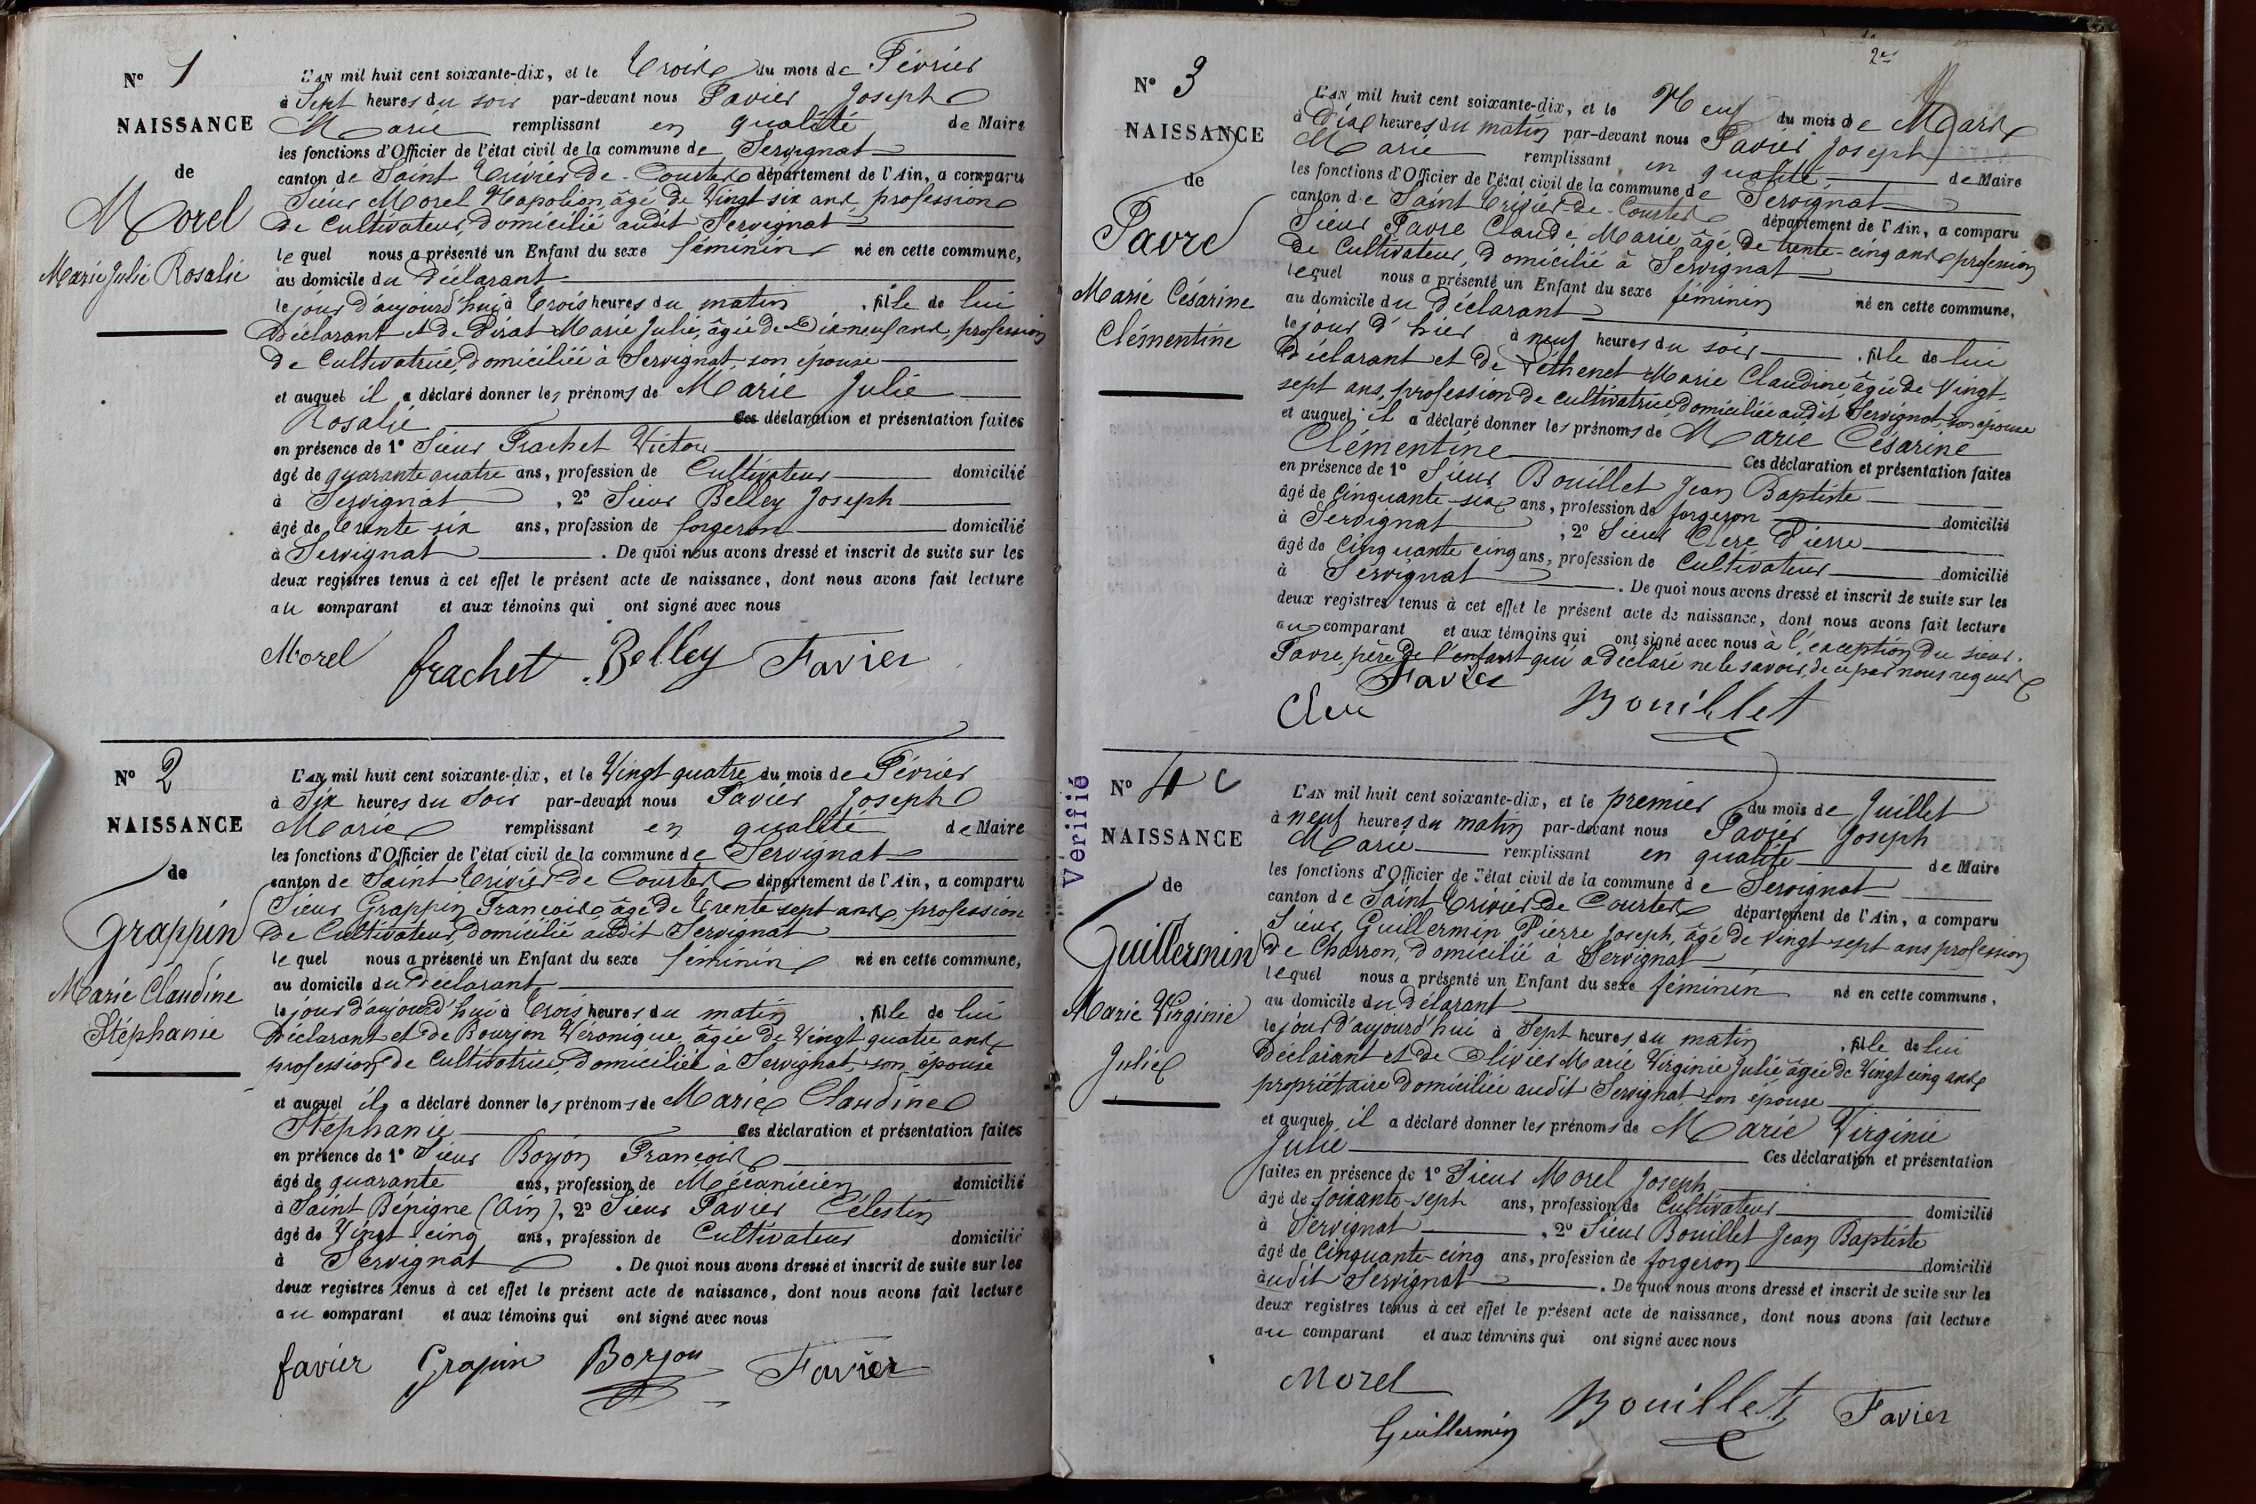 N° 1
NAISSANCE
de
Morel
Marie Julie Rosalie
L'AN mil huit cent soixante-dix, et le Trois du mois de Février
à Sept heures du soir par-devant nous Favier Joseph
Marie remplissant en qualité de Maire
les fonctions d'Officier de l'état civil de la commune de Servignat
canton de Saint Trivier-de-Courtes département de l'Ain, a comparu
Sieur Morel Napoléon, âgé de Vingt six ans, profession
de Cultivateur, domicilié audit Servignat
lequel nous a présenté un Enfant du sexe féminin né en cette commune,
au domicile du Déclarant
le jour d'aujourd'hui à Trois heures du matin, fille de lui
Déclarant et de Marie Julie, âgée de Dix neuf ans, profession
de Cultivatrice, domiciliée à Servignat, son épouse
et auquel il a déclaré donner les prénoms de Marie Julie
Rosalie Ces déclaration et présentation faites
en présence de 1° Sieur Frachet Victor
âgé de quarante quatre ans, profession de Cultivateur domicilié
à Servignat, 2° Sieur Belley Joseph
âgé de Trente six ans, profession de forgeron domicilié
à Servignat. De quoi nous avons dressé et inscrit de suite sur les
deux registres tenus à cet effet le présent acte de naissance, dont nous avons fait lecture
au comparant et aux témoins qui ont signé avec nous
Morel frachet Belley Favier
N° 2
NAISSANCE
de
Grappin
Marie Claudine
Stéphanie
L'AN mil huit cent soixante-dix, et le Vingt quatre du mois de Février
à Six heures du soir par-devant nous Favier Joseph
Marie remplissant en qualité de Maire
les fonctions d'Officier de l'état civil de la commune de Servignat
canton de Saint Trivier-de Courtes département de l'Ain, a comparu
Sieur Grappin François, âgé de Trente sept ans, profession
de Cultivateur, domicilié audit Servignat
lequel nous a présenté un Enfant du sexe féminin né en cette commune,
au domicile du Déclarant
le jour d'aujourd'hui à Trois heures du matin, fille de lui
Déclarant et de Bourjon Véronique, âgée de Vingt quatre ans,
profession de Cultivatrice, domiciliée à Servignat, son épouse
et auquel il a déclaré donner les prénoms de Marie Claudine
Stéphanie Ces déclaration et présentation faites
en présence de 1° Sieur Borjon François
âgé de quarante ans, profession de Mécanicien domicilié
à Saint Bénigne (Ain), 2° Sieur Favier Célestin
âgé de Vingt cinq ans, profession de Cultivateur domicilié
à Servignat. De quoi nous avons dressé et inscrit de suite sur les
deux registres tenus à cet effet le présent acte de naissance, dont nous avons fait lecture
au comparant et aux témoins qui ont signé avec nous
favier Grapin Borjon Favier
N° 3
NAISSANCE
de
Favre
Marie Césarine
Clémentine
L'AN mil huit cent soixante-dix, et le Neuf du mois de Mars
à Dix heures du matin par-devant nous Favier Joseph
Marie remplissant en qualité de Maire
les fonctions d'Officier de l'état civil de la commune de Servignat
canton de Saint Trivier-de-Courtes département de l'Ain, a comparu
Sieur Favre Claude Marie, âgé de trente-cinq ans, profession
de Cultivateur, domicilié à Servignat
lequel nous a présenté un Enfant du sexe féminin né en cette commune,
au domicile du Déclarant
le jour d'hier à neuf heures du soir, fille de lui
Déclarant et de Péthenet Marie Claudine âgée de Vingt-
sept ans, profession de cultivatrice, domiciliée audit Servignat, son épouse
et auquel il a déclaré donner les prénoms de Marie Césarine
Clémentine Ces déclaration et présentation faites
en présence de 1° Sieur Bouillet Jean Baptiste
âgé de Cinquante-six ans, profession de forgeron domicilié
à Servignat, 2° Sieur Clerc Pierre
âgé de Cinquante cinq ans, profession de Cultivateur domicilié
à Servignat. De quoi nous avons dressé et inscrit de suite sur les
deux registres tenus à cet effet le présent acte de naissance, dont nous avons fait lecture
au comparant et aux témoins qui ont signé avec nous à l'exception du sieur
Favre, père de l'enfant qui a déclaré ne le savoir, de ce par nous requis
Favier
Clerc Bouillet
Vérifié
N° 4
NAISSANCE
de
Guillermin
Marie Virginie
Julie
L'AN mil huit cent soixante-dix, et le premier du mois de Juillet
à neuf heures du matin par-devant nous Favier Joseph
Marie remplissant en qualité de Maire
les fonctions d'Officier de l'état civil de la commune de Servignat
canton de Saint Trivier-de Courtes département de l'Ain, a comparu
Sieur Guillermin Pierre Joseph, âgé de Vingt-sept ans profession
de Charron, domicilié à Servignat
lequel nous a présenté un Enfant du sexe féminin né en cette commune,
au domicile du Déclarant
le jour d'aujourd'hui à Sept heures du matin, fille de lui
Déclarant et de Olivier Marie Virginie Julie âgée de Vingt cinq ans,
propriétaire domiciliée audit Servignat son épouse
et auquel il a déclaré donner les prénoms de Marie Virginie
Julie Ces déclaration et présentation
faites en présence de 1° Sieur Morel Joseph
âgé de soixante-sept ans, profession de Cultivateur domicilié
à Servignat, 2° Sieur Bouillet Jean Baptiste
âgé de Cinquante-cinq ans, profession de forgeron domicilié
audit Servignat. De quoi nous avons dressé et inscrit de suite sur les
deux registres tenus à cet effet le présent acte de naissance, dont nous avons fait lecture
au comparant et aux témoins qui ont signé avec nous
Morel
Guillermin Bouillet Favier